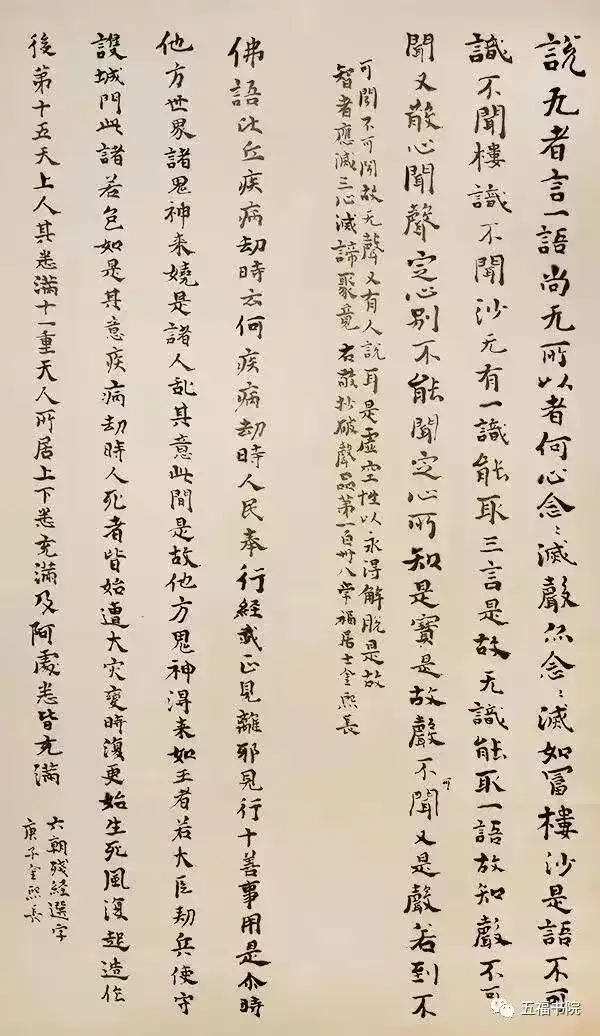 説无者言一語尚无所以者何心念〻滅聲亦念〻滅如冨樓沙是語不可
識不聞樓識不聞沙无有一識能取三言是故无識能取一語故知聲不可
聞又散心聞聲定心別不能聞定心所知是實是故聲不可聞又是聲若到不
可聞不可聞故无聲又有人說耳是虛空性以永得解脫是故
智者應滅三心滅諦聚竟 右敬抄破聲品第一百卌八常福居士金熙長
佛語比丘疾病劫時云何疾病劫時人民奉行經戒正見離邪見行十善事用是尒時
他方世界諸鬼神来嬈是諸人乱其意此間是故他方鬼神得来如王者若大臣刼兵使守
護城門此諸若包如是其意疾病劫時人死者皆始遭大灾變時復更始生死風復起造化
後第十五天上人其悉滿十一重天人所居上下悉充滿及阿處悉皆充滿
六朝殘経選字
庚子金熙長
五福书院